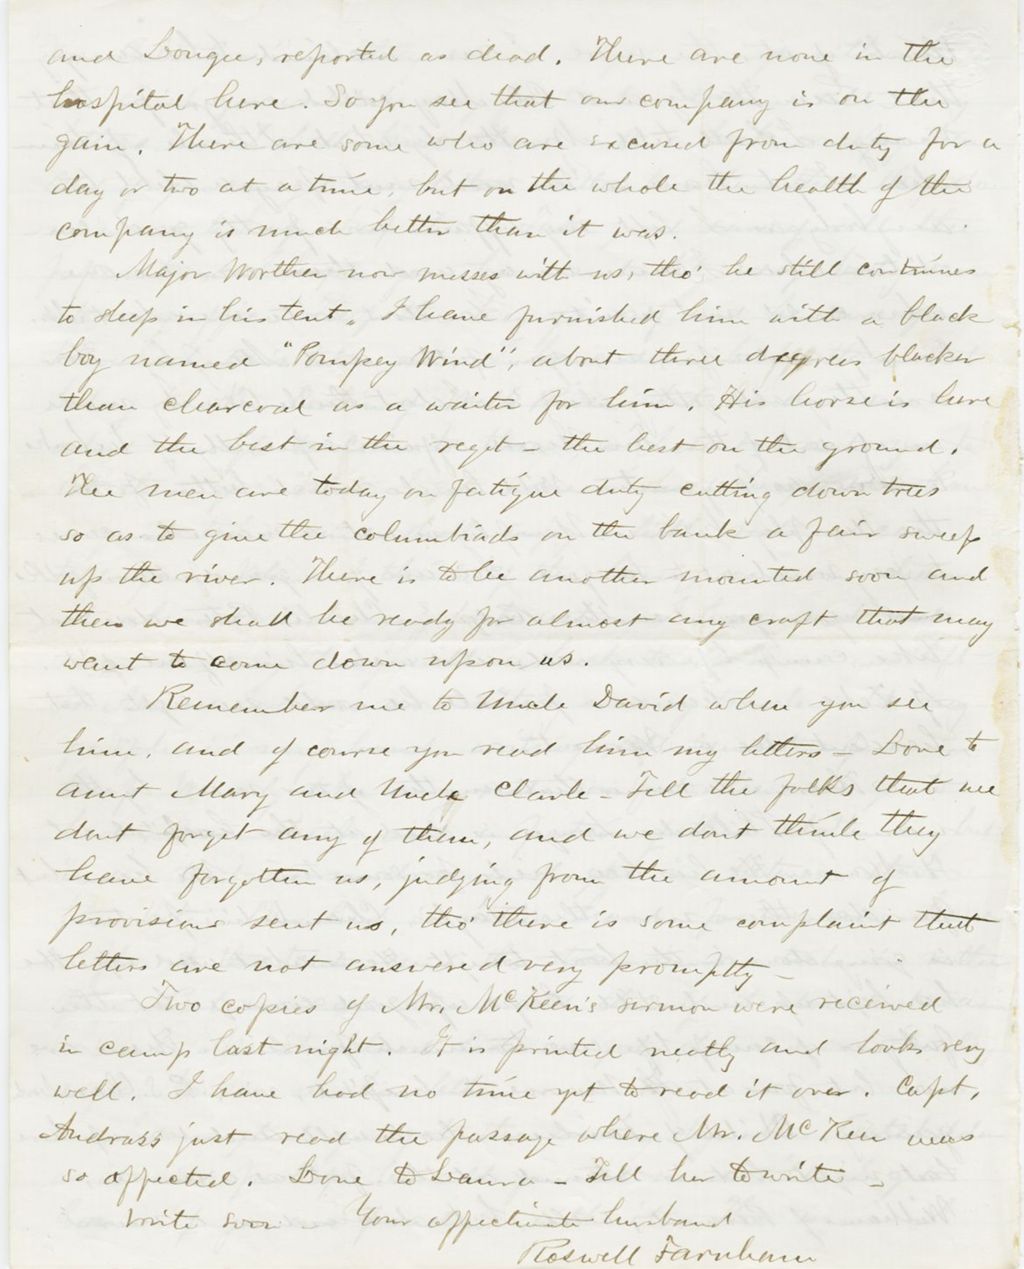 and Dougee, reported as dead. There are none in the
hospital here. So you see that our company is on the
gain. There are some who are excused from duty for a
day or two at a time, but on the whole the health of the
company is much better than it was.
Major Worthen now messes with us, tho' he still continues
to sleep in his tent. I have furnished him with a black
boy named "Pompey Wind", about three degrees blacker
than charcoal as a waiter for him. His horse is here
and the best in the regt - the best on the ground.
The men are today on fatigue duty cutting down trees
so as to give the columbiads on the bank a fair sweep
up the river. There is to be another mounted soon and
then we shall be ready for almost any craft that may
want to come down upon us.
Remember me to Uncle David when you see
him, and of course you read him my letters - Love to
aunt Mary and Uncle Clark - Tell the folks that we
dont forget any of them, and we dont think they
have forgotten us, judging from the amount of
provisions sent us, tho' there is some complaint that
letters are not answered very promptly -
Two copies of Mr. McKeen's sermon were received
in camp last night. It is printed neatly and looks very
well. I have had no time yet to read it over. Capt.
Andross just read the passage where Mr. McKeen was
so affected. Love to Laura - Tell her to write -
Write soon - Your affectionate husband
Roswell Farnham